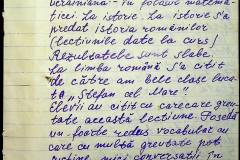 ucraineană - în folosul matema-
ticei. La istorie. La istorie s'a
predat istoria românilor
(lectiunile date la curs)
Rezultatele sunt slabe.
La limba română s'a citit
de către am bele clase buca-
ta „Stefan cel Mare".
Elevii au citit cu carecare greu-
tate această lectiune. Posedă
un foarte redus vocabular cu
care cu multă greutate pot
sustine mici conversatii în